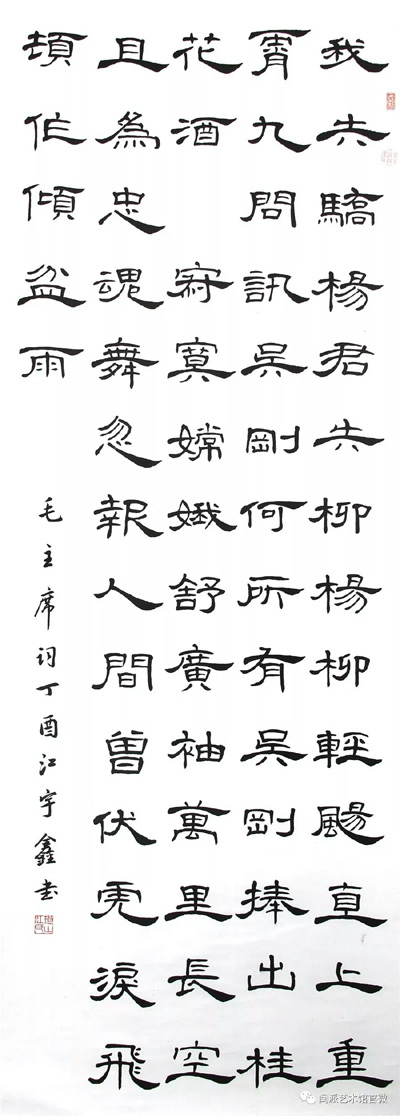 我失驕楊君失柳楊柳輕颺直上重
霄九問訊吳剛何所有吳剛捧出桂
花酒 寂寞嫦娥舒廣袖萬里長空
且為忠魂舞忽報人間曾伏虎淚飛
頓作傾盆雨
毛主席詞丁酉江宇鑫書
闽派艺术馆官微